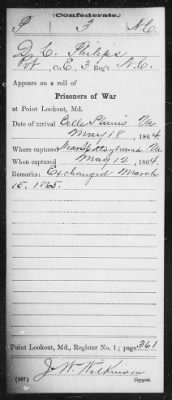 (Confederate.)
P 3 N.C.
D. C. Philips
Pvt, Co. E, 3 Reg't N.C.
Appears on a roll of
Prisoners of War
at Point Lookout, Md.
Date of arrival Belle Plains Va
May 18, 1864
Where captured Near Spottsylvania Va
When captured May 12, 1864.
Remarks: Exchanged March
15, 1865.
Point Lookout, Md., Register No. 1; page 361
J. W. Wilkinson
Copyist.